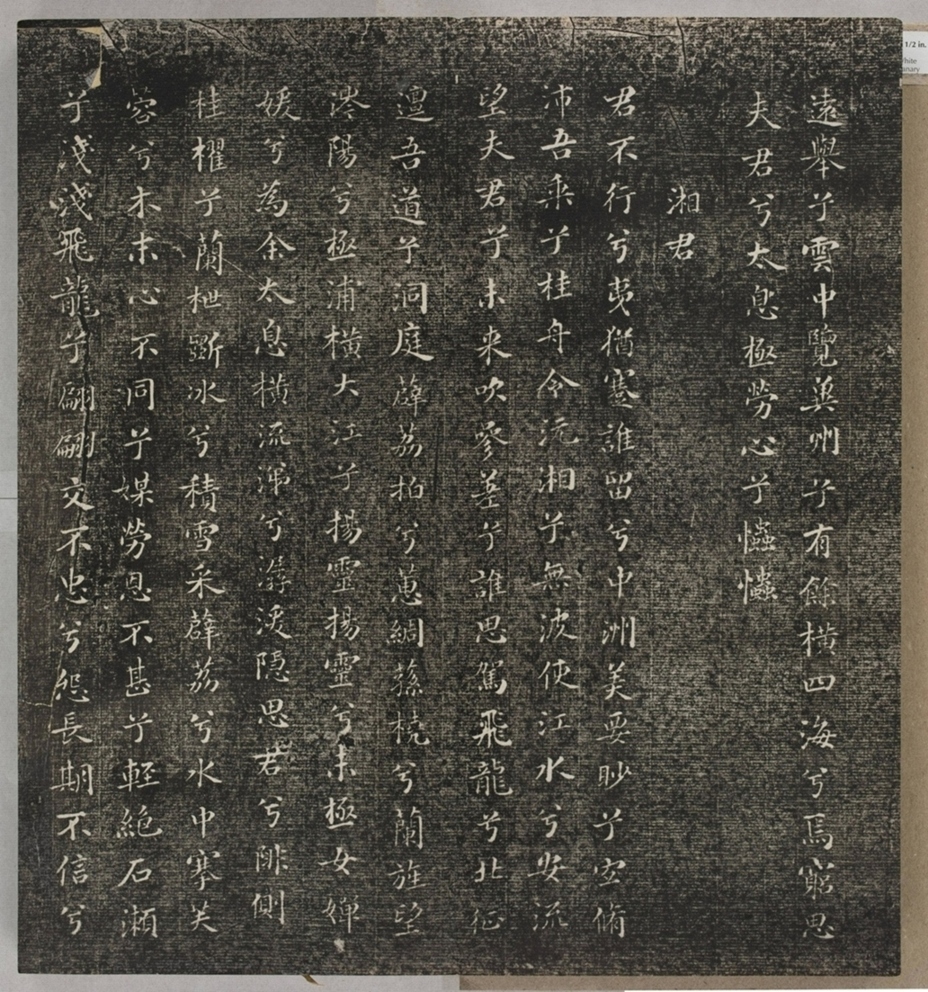 遠舉兮雲中覽兾州兮有餘橫四海兮焉窮思
夫君兮太息極勞心兮𢥞𢥞
湘君
君不行兮夷猶蹇誰留兮中洲美要眇兮宜脩
沛吾乘兮桂舟令沅湘兮無波使江水兮安流
望夫君兮未来吹參差兮誰思駕飛龍兮北征
邅吾道兮洞庭薜荔拍兮蕙綢蓀橈兮蘭旌望
涔陽兮極浦橫大江兮揚靈揚靈兮未極女嬋
媛兮為余太息橫流涕兮潺湲隱思君兮陫側
桂櫂兮蘭枻斲冰兮積雪采薜荔兮水中搴芙
蓉兮木末心不同兮媒勞恩不甚兮輕絕石瀬
兮淺淺飛龍兮翩翩交不忠兮怨長期不信兮
1/2 in.